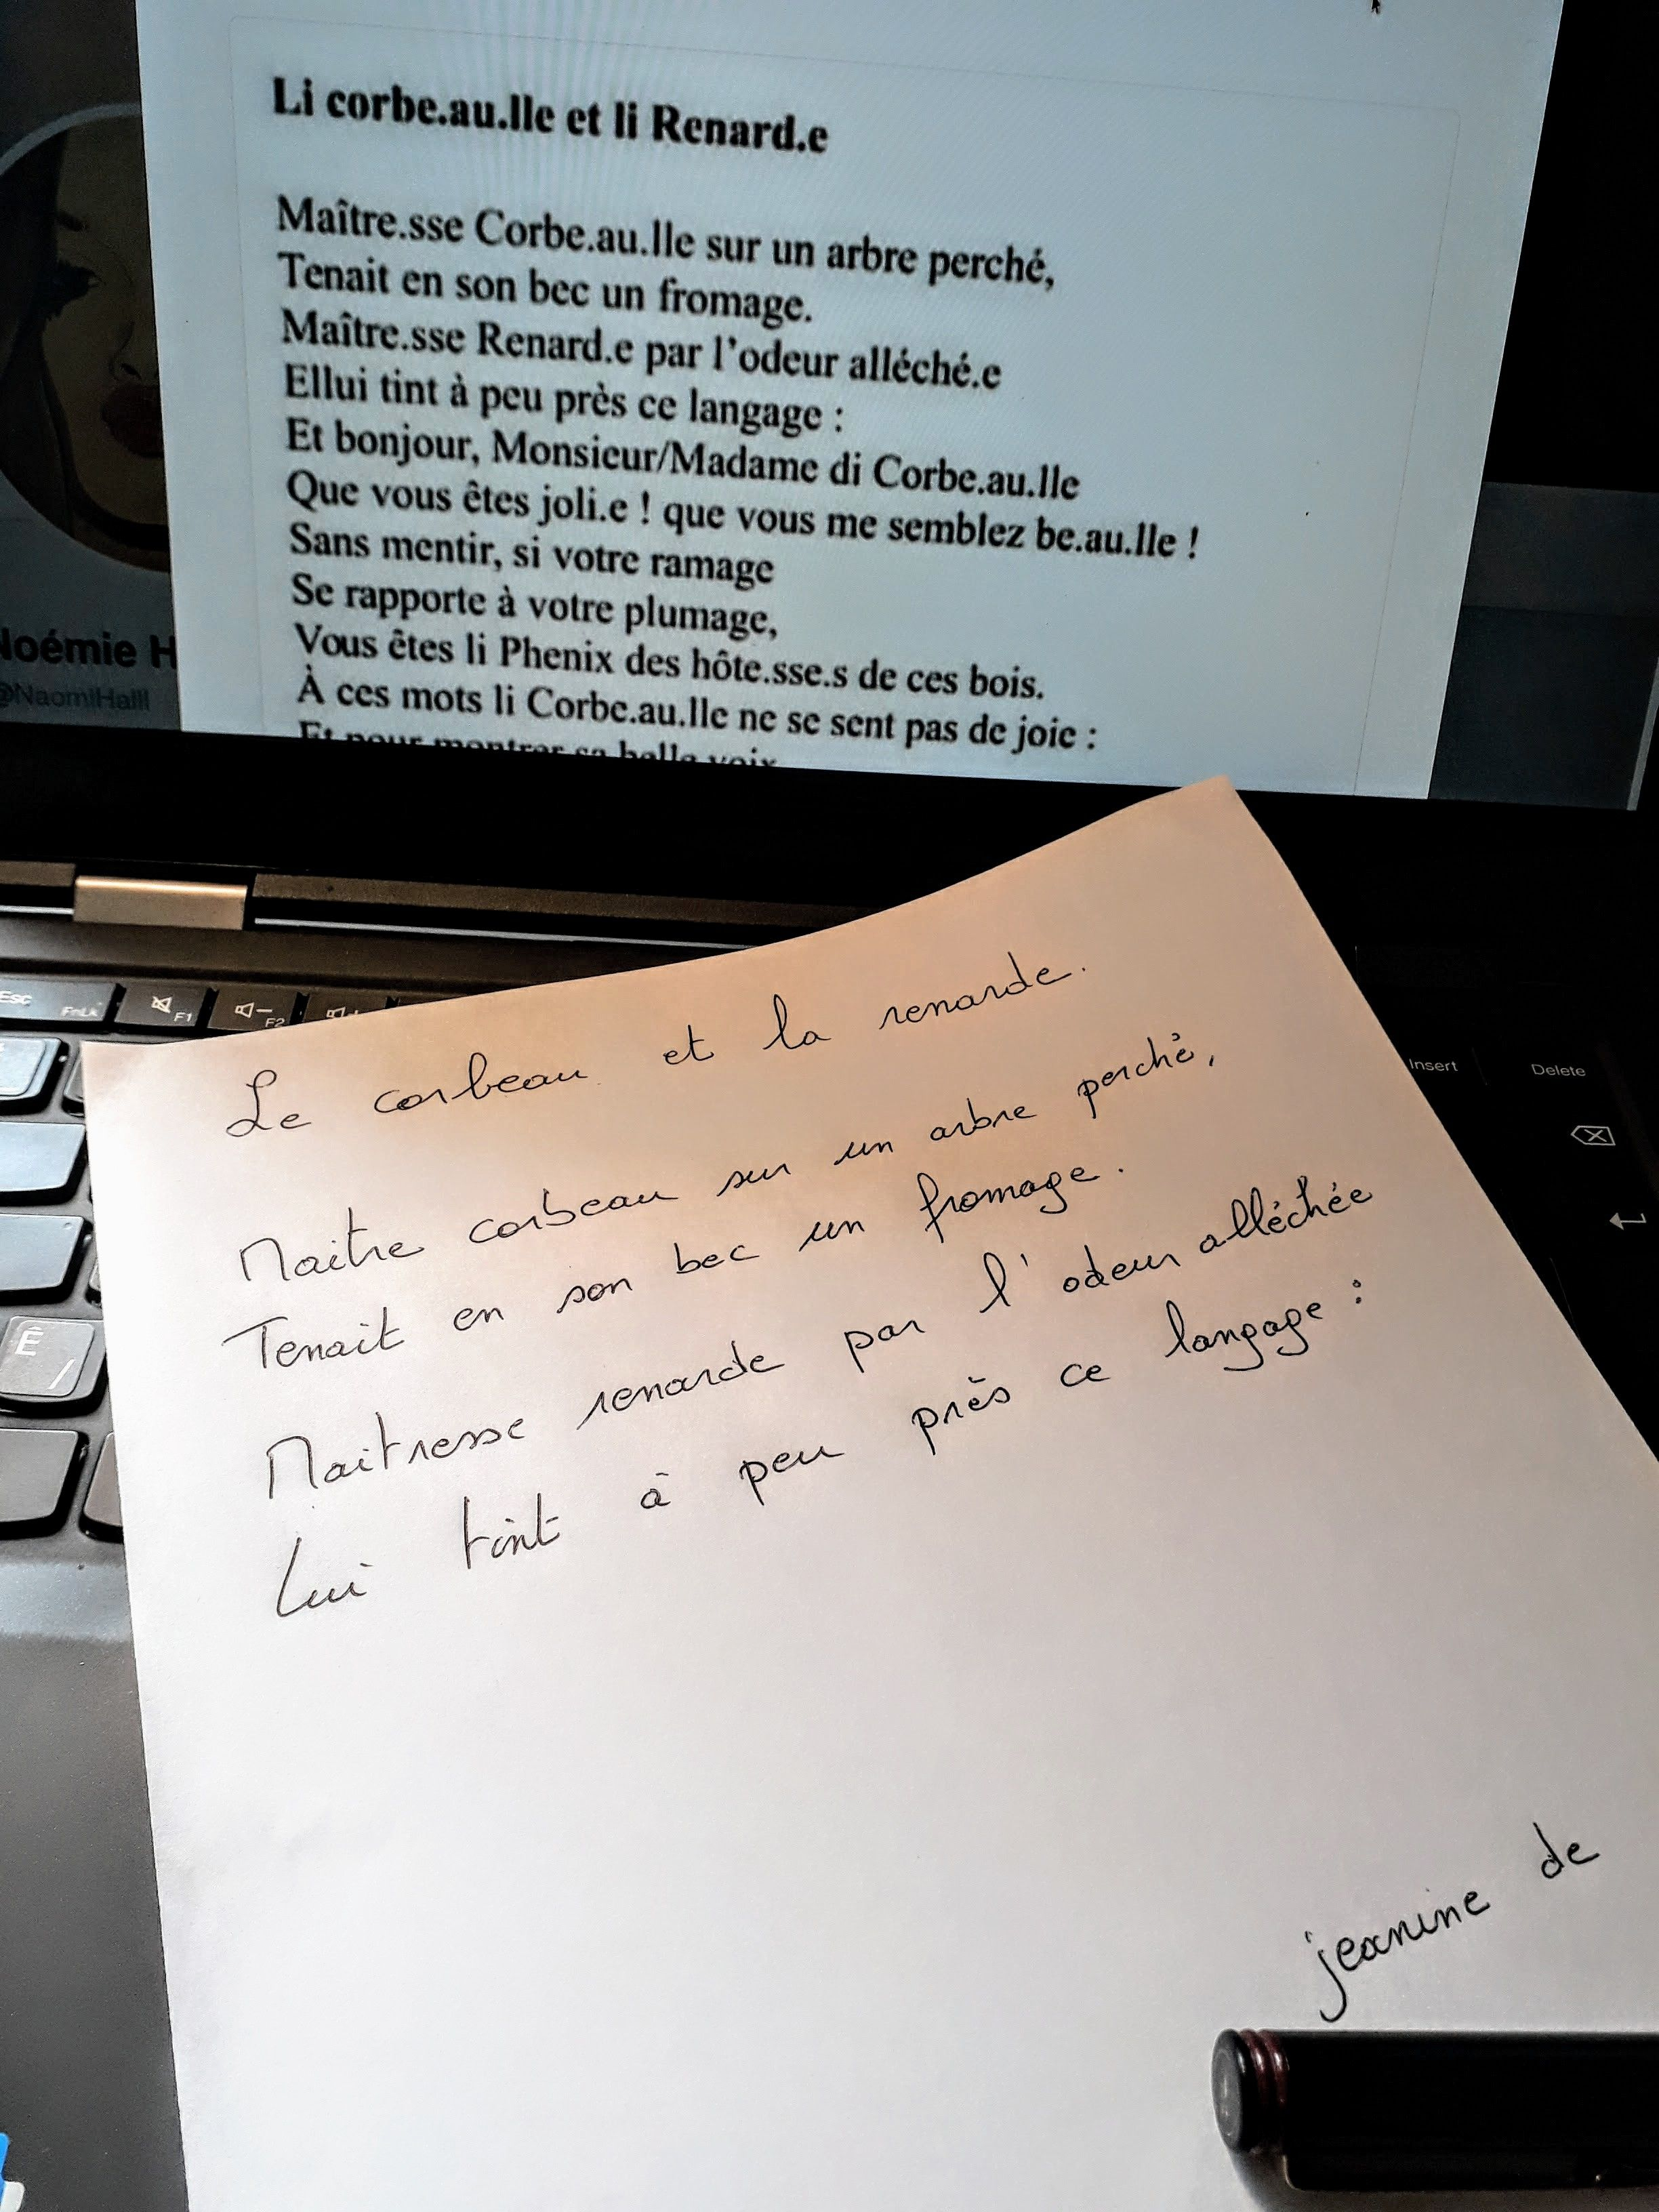 Li corbe.au.lle et li Renard.e
Maître.sse Corbe.au.lle sur un arbre perché,
Tenait en son bec un fromage.
Maître.sse Renard.e par l'odeur alléché.e
Ellui tint à peu près ce langage :
Et bonjour, Monsieur/Madame di Corbe.au.lle
Que vous êtes joli.e ! que vous me semblez be.au.lle !
Sans mentir, si votre ramage
Se rapporte à votre plumage,
Vous êtes li Phenix des hôte.sse.s de ces bois.
À ces mots li Corbe.au.lle ne se sent pas de joie :
Et pour montrer sa belle voix
oémie H
@NaomiHalll
Esc
FnLk
F1
F2
Insert
Delete
Ê
/
Le corbeau et la renarde.
Maitre corbeau sur un arbre perché,
Tenait en son bec un fromage.
Maitresse renarde par l'odeur alléchée
Lui tint à peu près ce langage :
jeanine de